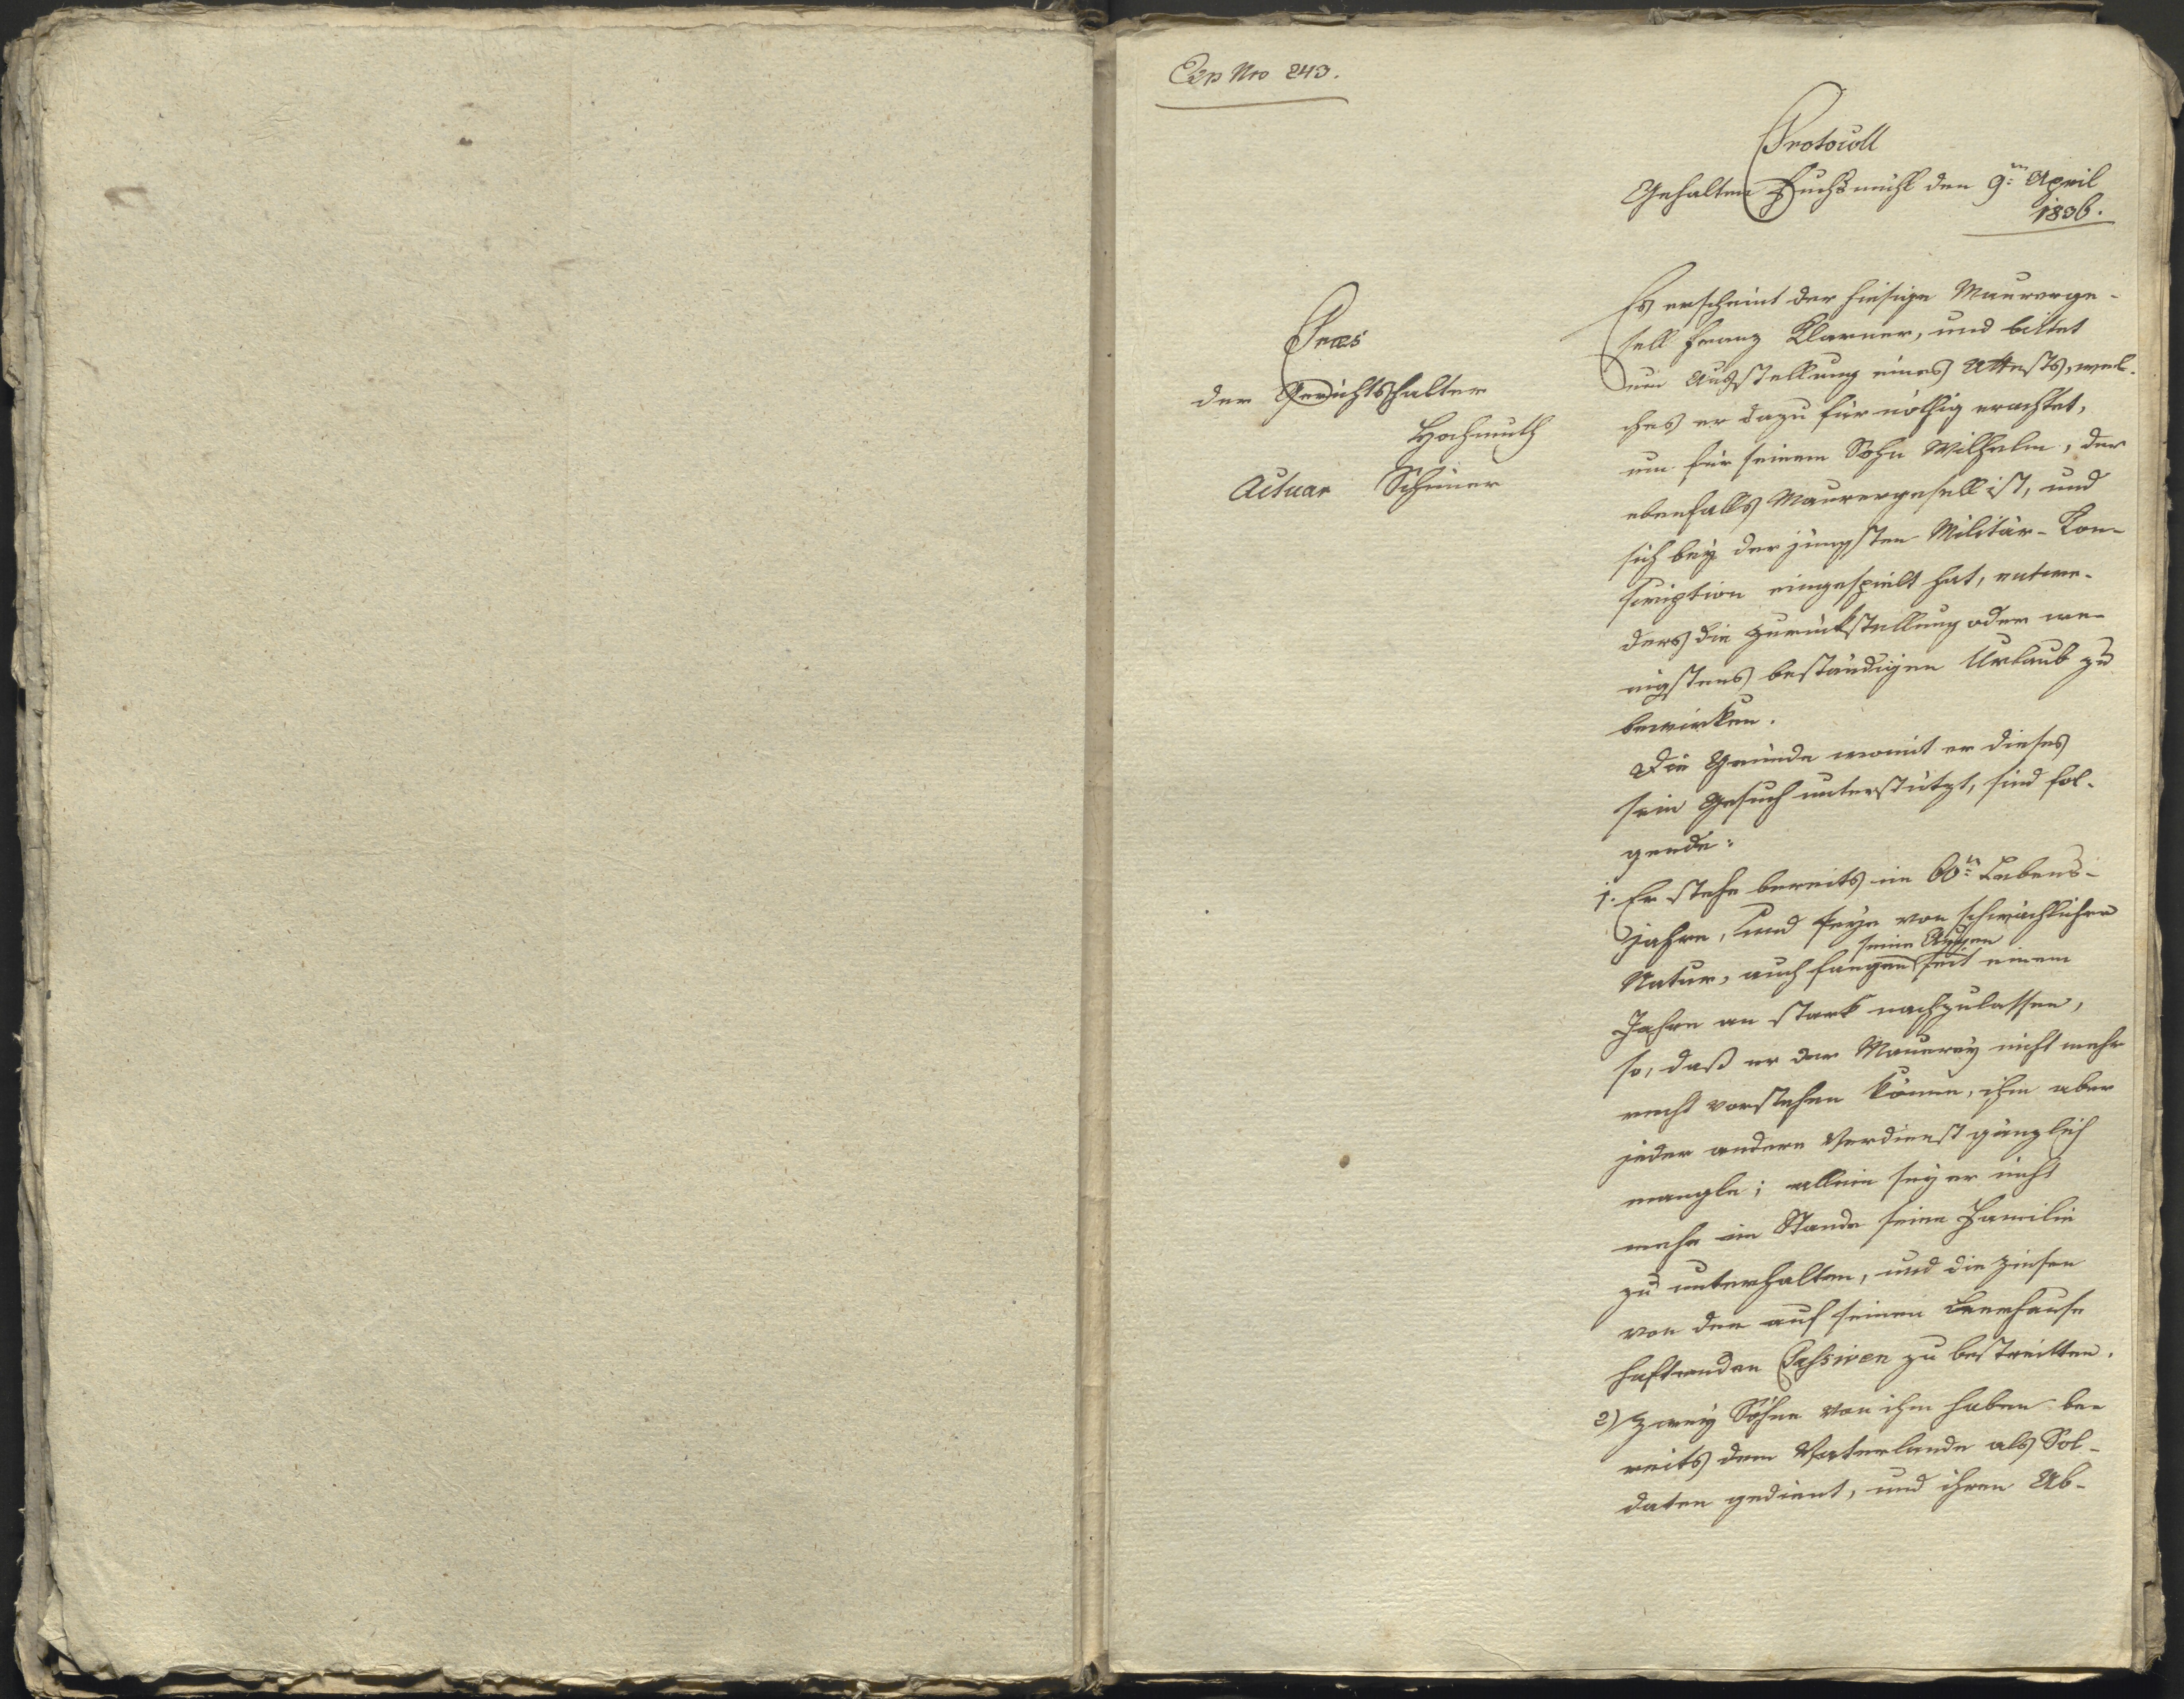 Exp Nro 243.
Protocoll
Gehalten Fuchsmühl den 9:ten April
1836.
Praes
der Gerichtshalter
Hochmuth
Actuar Schiener
Es erscheint der hiesige Maurerge-
sell Franz Klarner, und bittet
um Ausstellung eines Attests, wel-
ches er dazu für nöthig erachtet,
um für seinem Sohn Wilhelm, der
ebenfalls Maurergesell ist, und
sich bey der jüngsten Militär-Con-
scription eingespielt hat, entwe-
ders die Zurückstellung oder we-
nigstens beständigen Urlaub zu
bewirken.
Die Gründe womit er dieses
sein Gesuch unterstützt, sind fol-
gende:
1. Er stehe bereits im 60:ten Lebens-
jahre, und seye von schwächlicher
Natur, auch fangen seine Augen seit einem
Jahre an stark nachzulassen,
so, daß er der Maurerey nicht mehr
recht vorstehen könne, ihm aber
jeder andere Verdienst gänzlich
mangle; allein sey er nicht
mehr im Stande seine Familie
zu unterhalten, und die Zinsen
von den auf seinen Leerhause
haftenden Passiven zu bestreitten.
2) Zwey Söhne von ihm haben be-
reits dem Vaterlande als Sol-
daten gedient, und ihren Ab-